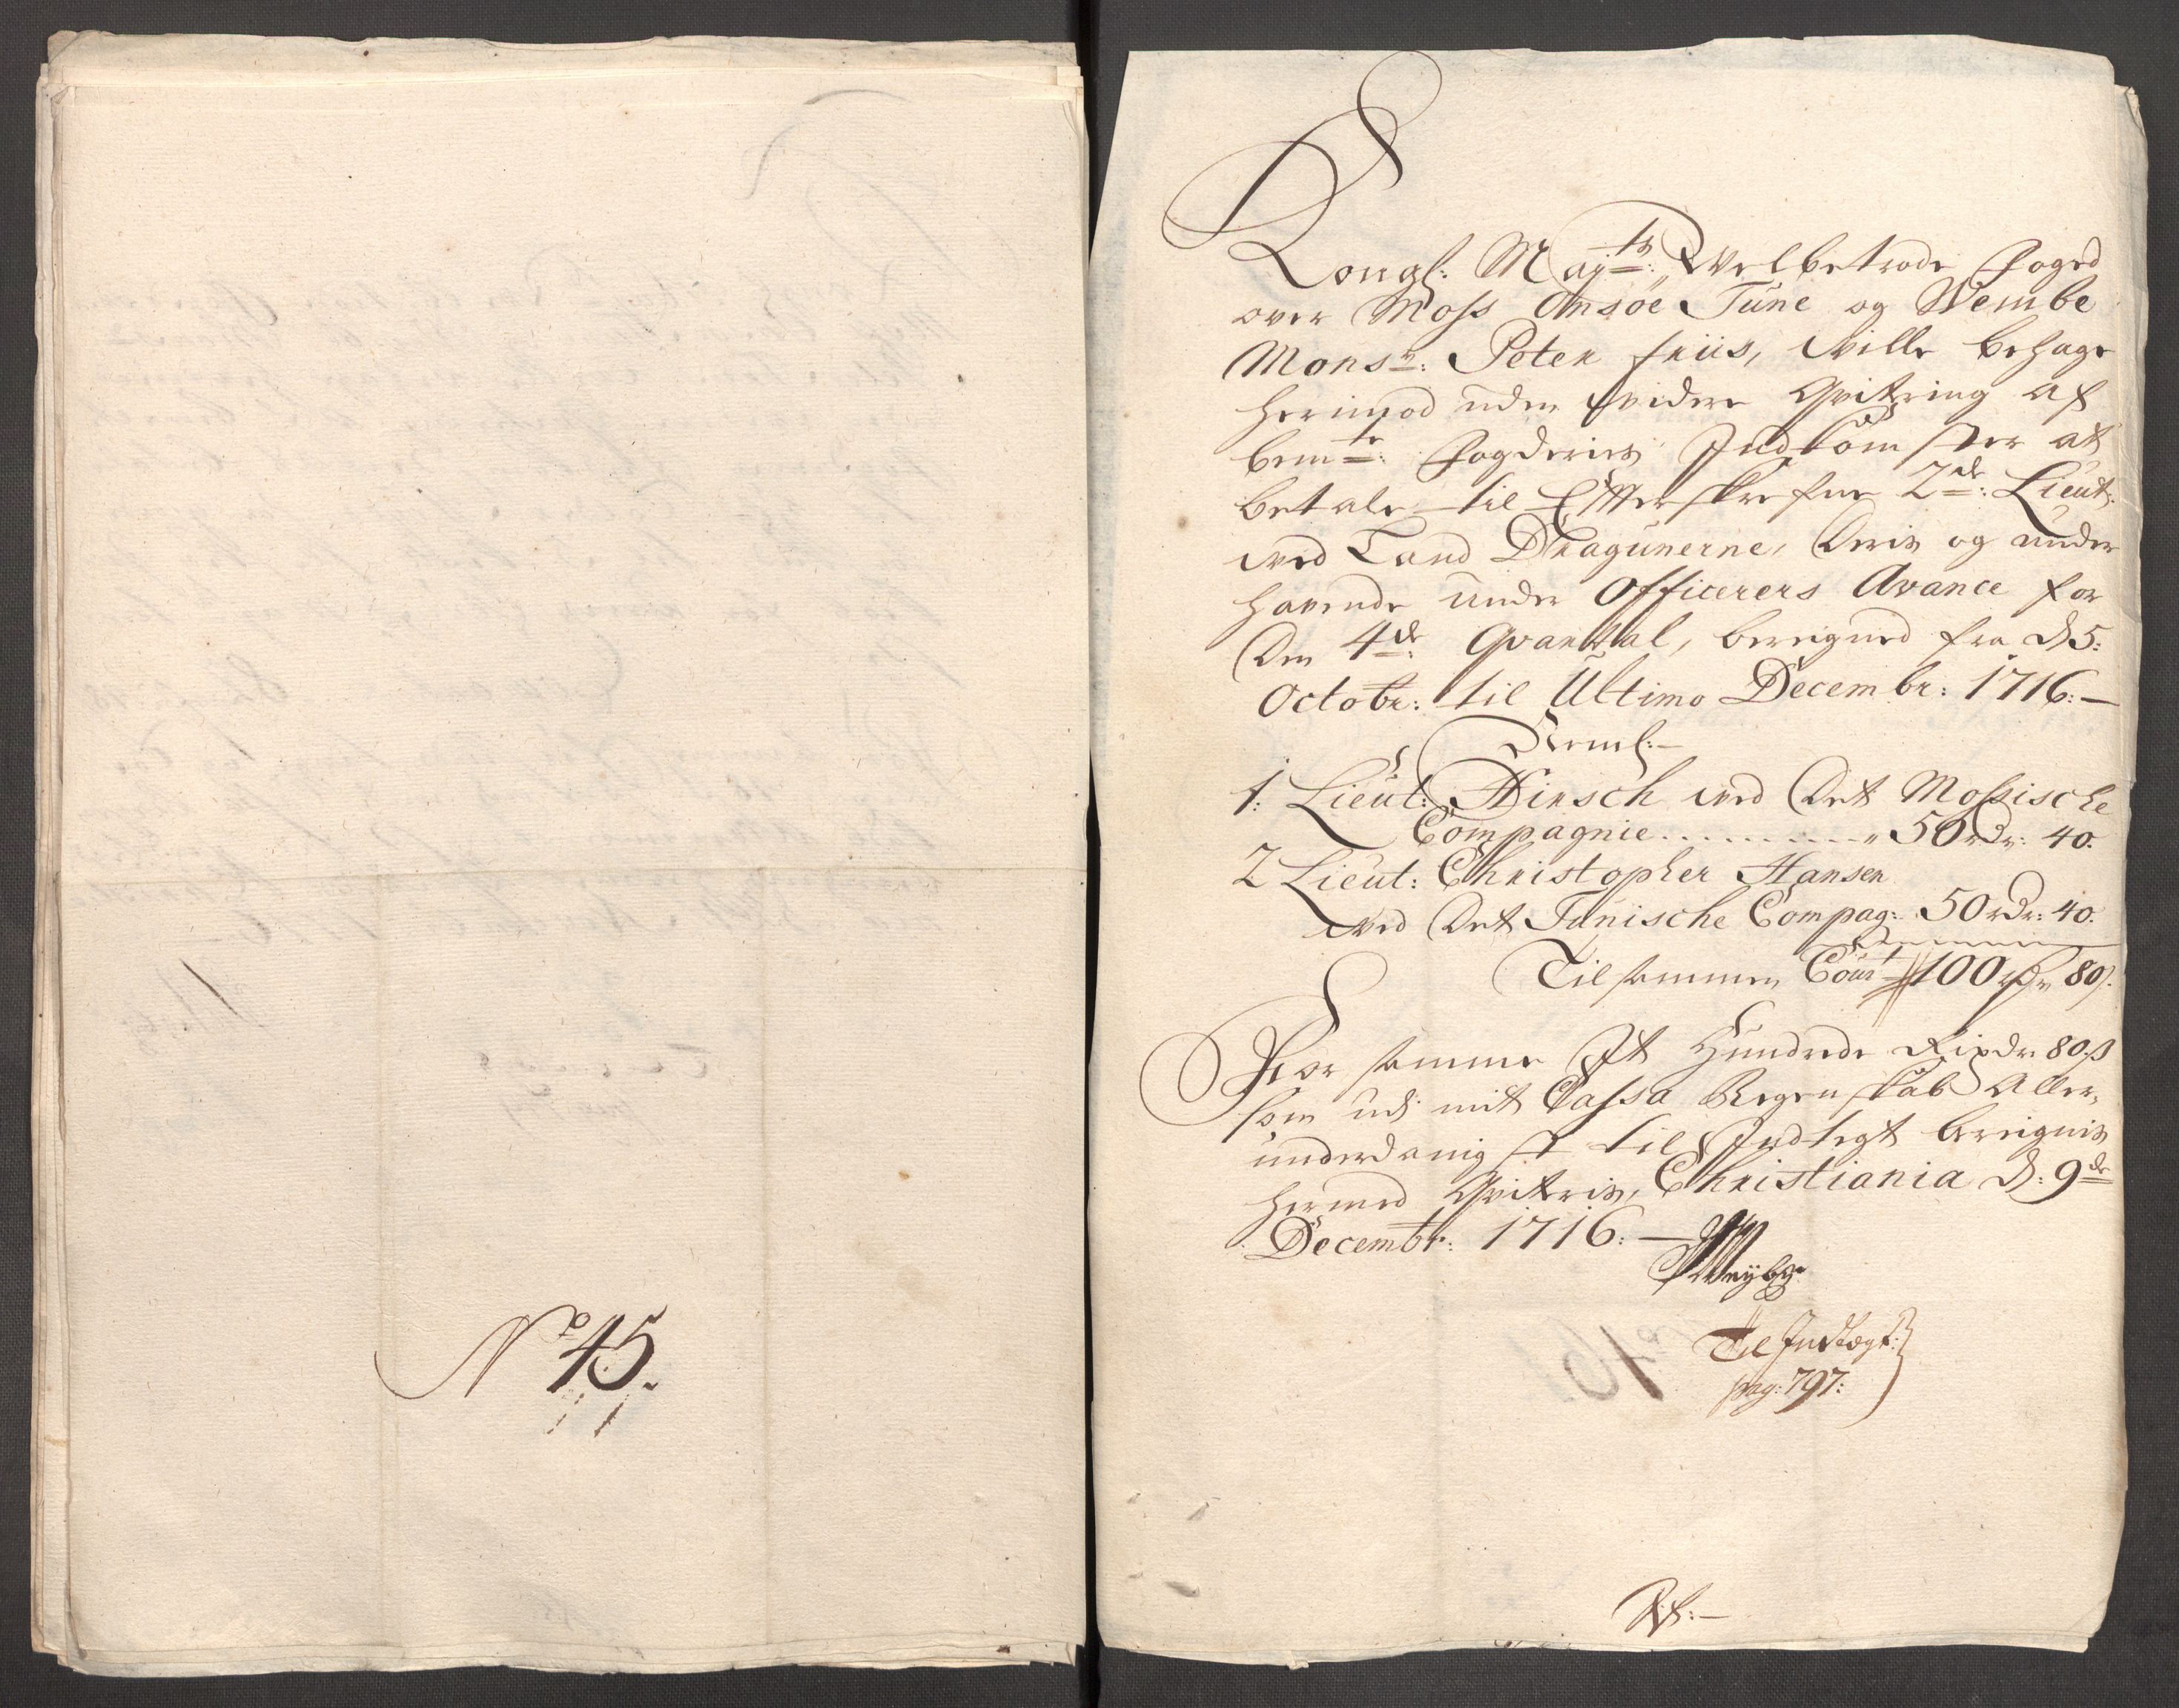 No 45.
Kongl: Mayts: Welbetrode Foged
over Moss Onsøe Tune og Wembe
Monsr: Peter friis, wille behage
herimod uden widere Qvitering af
bemte: Fogderies Indkomster at
betale til Efterskrefne 2de: Lieut:
wed Land Dragunerne, deris og under
havende under Officerers Avance for
den 4de: Qvartal, bereigned fra d 5:
Octobr: til Ultimo Decembr: 1716:—
Neml:—
1: Lieut: Hirsch wed det Mossische
Compagnie.......... 50 rdr: 40.
2 Lieut: Christopher Hansen
wed det Tunische Compag: 50 rdr: 40.
Tilsammen Court 100 rdr 80 s.
For samme It Hundrede Rixdr 80 s
som udj mit Cassa Regenskab Aller,
underdanigst til Indtegt bereignis
hermed Qviteris, Christiania d: 9de
Decembr: 1716:—
Til Indtægt:
pag: 797: